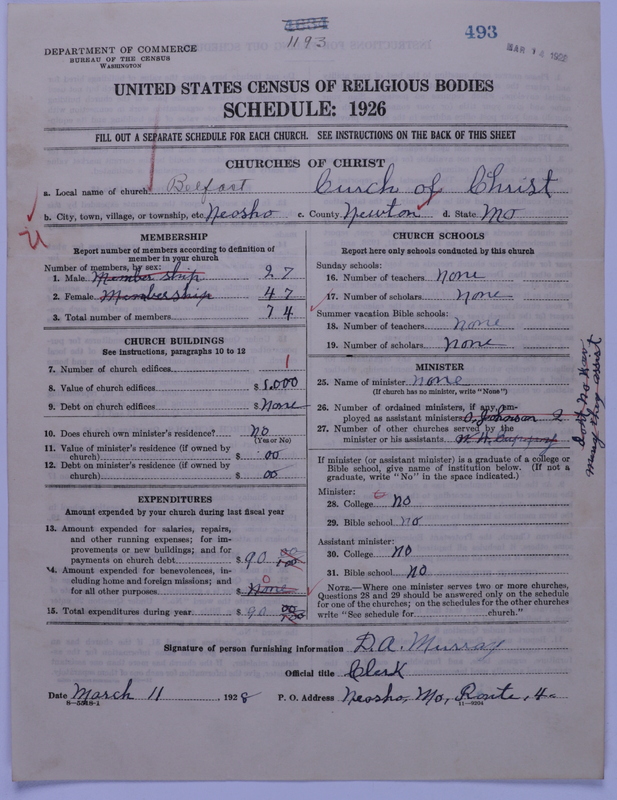 4634
1193
493
MAR 14 1928
DEPARTMENT OF COMMERCE
BUREAU OF THE CENSUS
WASHINGTON
UNITED STATES CENSUS OF RELIGIOUS BODIES
SCHEDULE: 1926
FILL OUT A SEPARATE SCHEDULE FOR EACH CHURCH. SEE INSTRUCTIONS ON THE BACK OF THIS SHEET
CHURCHES OF CHRIST
a. Local name of church Belfast Curch of Christ
b. City, town, village, or township, etc. Neosho c. County Newton d. State Mo
MEMBERSHIP
Report number of members according to definition of
member in your church
Number of members, by sex:
1. Male Member ship 27
2. Female Membership 47
3. Total number of members 74
CHURCH BUILDINGS
See instructions, paragraphs 10 to 12
7. Number of church edifices 1
8. Value of church edifices $ 5,000
9. Debt on church edifices $ None
10. Does church own minister's residence? no
(Yes or No)
11. Value of minister's residence (if owned by
church) $ 00
12. Debt on minister's residence (if owned by
church) $ 00
EXPENDITURES
Amount expended by your church during last fiscal year
13. Amount expended for salaries, repairs,
and other running expenses; for im-
provements or new buildings; and for
payments on church debt $ 90 00
14. Amount expended for benevolences, in-
cluding home and foreign missions; and
for all other purposes $ None 0
15. Total expenditures during year $ 90 00
CHURCH SCHOOLS
Report here only schools conducted by this church
Sunday schools:
16. Number of teachers none
17. Number of scholars none
Summer vacation Bible schools:
18. Number of teachers none
19. Number of scholars none
MINISTER
25. Name of minister none
(If church has no minister, write "None")
26. Number of ordained ministers, if any, em-
ployed as assistant ministers O, Johnson 2
27. Number of other churches served by the
minister or his assistants
Dont no how
many they assist
If minister (or assistant minister) is a graduate of a college or
Bible school, give name of institution below. (If not a
graduate, write "No" in the space indicated.)
Minister:
28. College no
29. Bible school no
Assistant minister:
30. College no
31. Bible school no
NOTE.—Where one minister serves two or more churches,
Questions 28 and 29 should be answered only on the schedule
for one of the churches; on the schedules for the other churches
write "See schedule for church."
Signature of person furnishing information D. A. Murray
Official title Clerk
Date March 11, 1928 P. O. Address Neosho, Mo, Route, 4
8-5518-1
11-9204